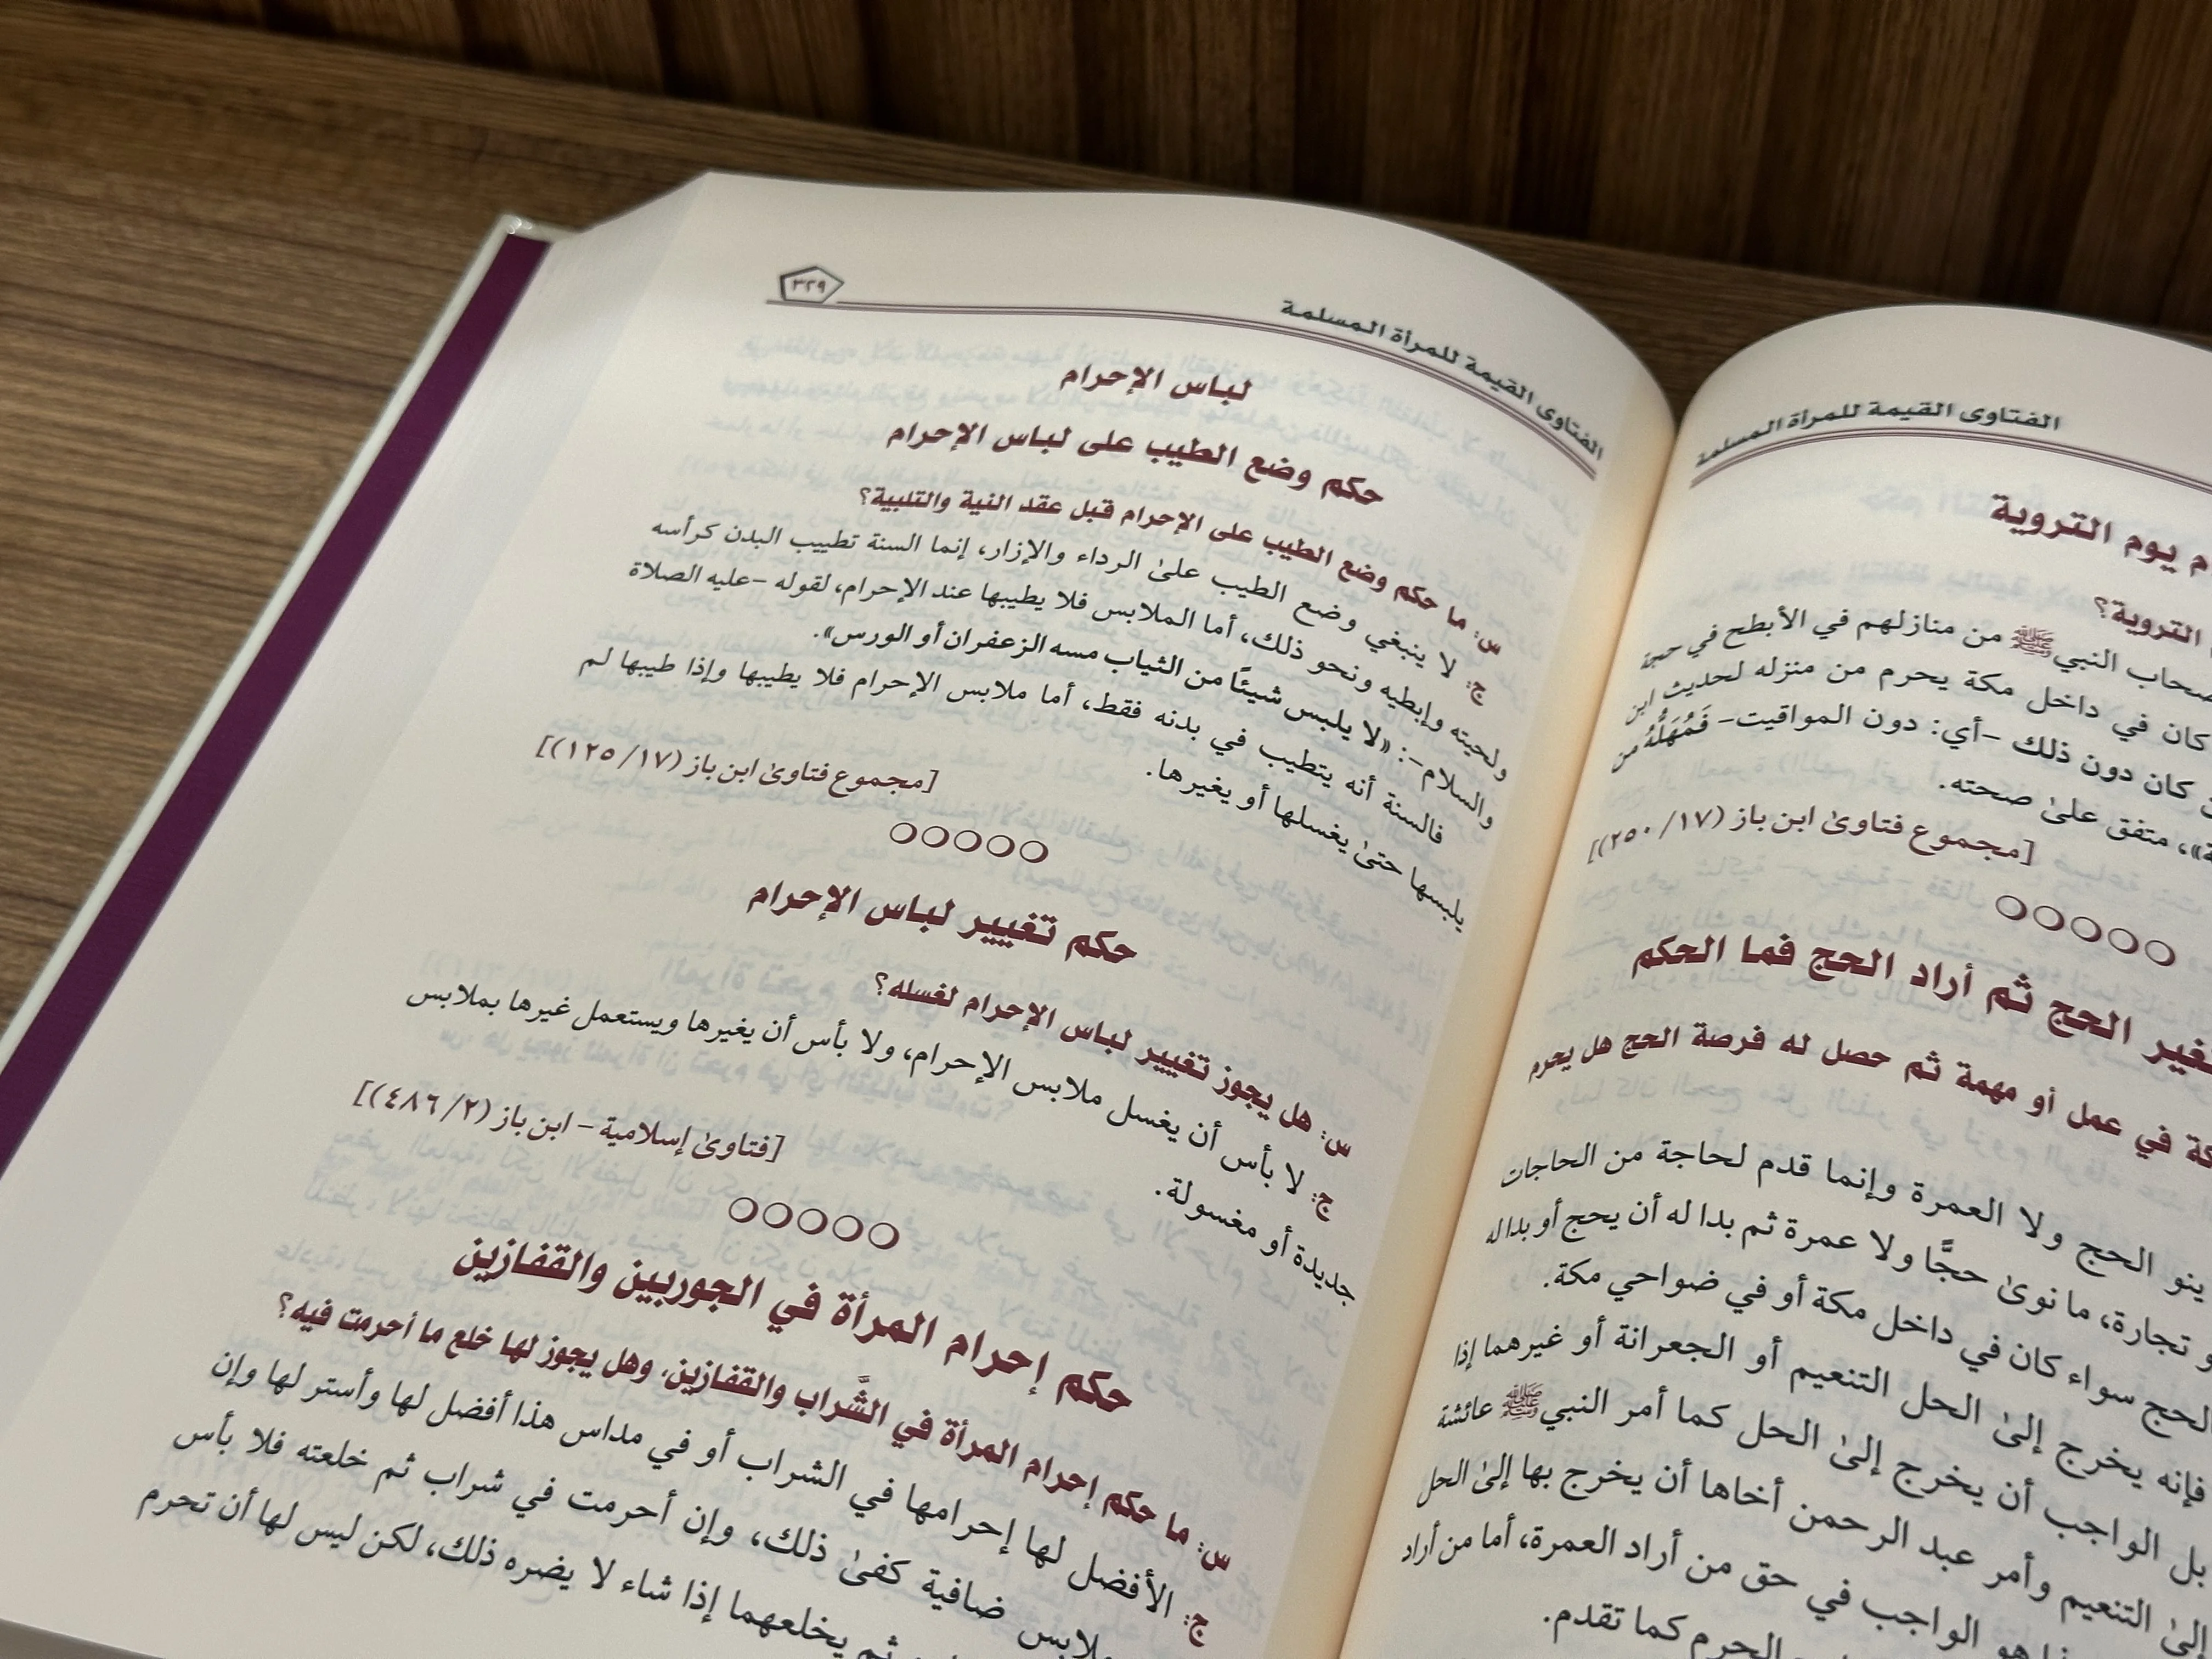 الفتاوى القيمة للمرأة المسلمة
م يوم التروية
التروية؟
صحاب النبي ﷺ من منازلهم في الأبطح في حجة
كان في داخل مكة يحرم من منزله لحديث ابن
كان دون ذلك -أي: دون المواقيت- فَمُهَلُّهُ من
»، متفق علىٰ صحته.
[مجموع فتاوىٰ ابن باز (١٧/ ٢٥٠)]
غير الحج ثم أراد الحج فما الحكم
كة في عمل أو مهمة ثم حصل له فرصة الحج هل يحرم
ينو الحج ولا العمرة وإنما قدم لحاجة من الحاجات
و تجارة، ما نوىٰ حجًّا ولا عمرة ثم بدا له أن يحج أو بدا له
لحج سواء كان في داخل مكة أو في ضواحي مكة.
فإنه يخرج إلىٰ الحل التنعيم أو الجعرانة أو غيرهما إذا
بل الواجب أن يخرج إلىٰ الحل كما أمر النبي ﷺ عائشة
إلىٰ التنعيم وأمر عبد الرحمن أخاها أن يخرج بها إلىٰ الحل
هو الواجب في حق من أراد العمرة، أما من أراد
الحرم كما تقدم.
الفتاوى القيمة للمرأة المسلمة
٣٢٩
لباس الإحرام
حكم وضع الطيب على لباس الإحرام
س: ما حكم وضع الطيب على الإحرام قبل عقد النية والتلبية؟
ج: لا ينبغي وضع الطيب علىٰ الرداء والإزار، إنما السنة تطييب البدن كرأسه
ولحيته وإبطيه ونحو ذلك، أما الملابس فلا يطيبها عند الإحرام، لقوله -عليه الصلاة
والسلام-: «لا يلبس شيئًا من الثياب مسه الزعفران أو الورس».
فالسنة أنه يتطيب في بدنه فقط، أما ملابس الإحرام فلا يطيبها وإذا طيبها لم
يلبسها حتىٰ يغسلها أو يغيرها.
[مجموع فتاوىٰ ابن باز (١٧/ ١٢٥)]
حكم تغيير لباس الإحرام
س: هل يجوز تغيير لباس الإحرام لغسله؟
ج: لا بأس أن يغسل ملابس الإحرام، ولا بأس أن يغيرها ويستعمل غيرها بملابس
جديدة أو مغسولة.
[فتاوىٰ إسلامية - ابن باز (٢/ ٤٨٦)]
حكم إحرام المرأة في الجوربين والقفازين
س: ما حكم إحرام المرأة في الشَّراب والقفازين، وهل يجوز لها خلع ما أحرمت فيه؟
ج: الأفضل لها إحرامها في الشراب أو في مداس هذا أفضل لها وأستر لها وإن
ضافية كفىٰ ذلك، وإن أحرمت في شراب ثم خلعته فلا بأس
ثم يخلعهما إذا شاء لا يضره ذلك، لكن ليس لها أن تحرم